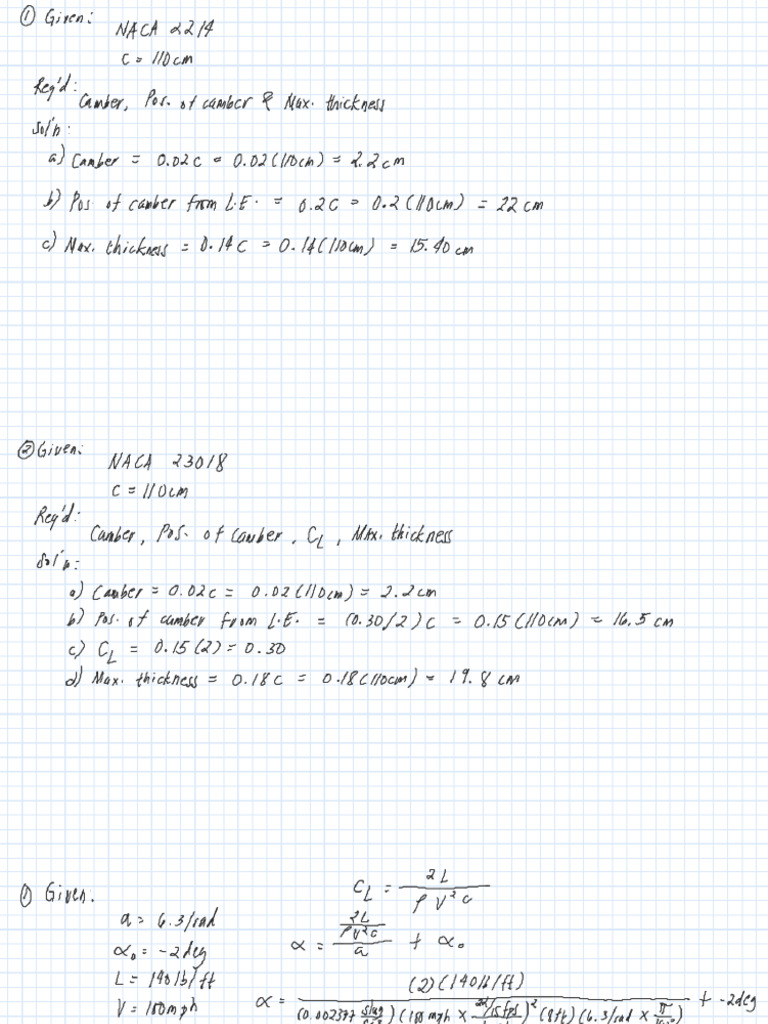 ① Given:
NACA 2214
c = 110cm
Req'd:
Camber, Pos. of camber & Max. thickness
Sol'n:
a) Camber = 0.02c = 0.02(110cm) = 2.2cm
b) Pos of camber from L.E. = 0.2c = 0.2(110cm) = 22cm
c) Max. thickness = 0.14c = 0.14(110cm) = 15.40cm
② Given:
NACA 23018
c = 110cm
Req'd:
Camber, Pos. of camber, C_L, Max. thickness
Sol'n:
a) Camber = 0.02c = 0.02(110cm) = 2.2cm
b) Pos. of camber from L.E. = (0.30/2)c = 0.15(110cm) = 16.5cm
c) C_L = 0.15(2) = 0.30
d) Max. thickness = 0.18c = 0.18(110cm) = 19.8cm
① Given.
C_L = 2L / ρV²c
a = 6.3/rad
α = (2L/ρV²c)/a + α₀
α₀ = -2deg
L = 140lb/ft
α = (2)(140lb/ft)
+ -2deg
V = 180mph
(0.002377 slug
)(180mph × 22/15fps
)²(8ft)(6.3/rad × π
)